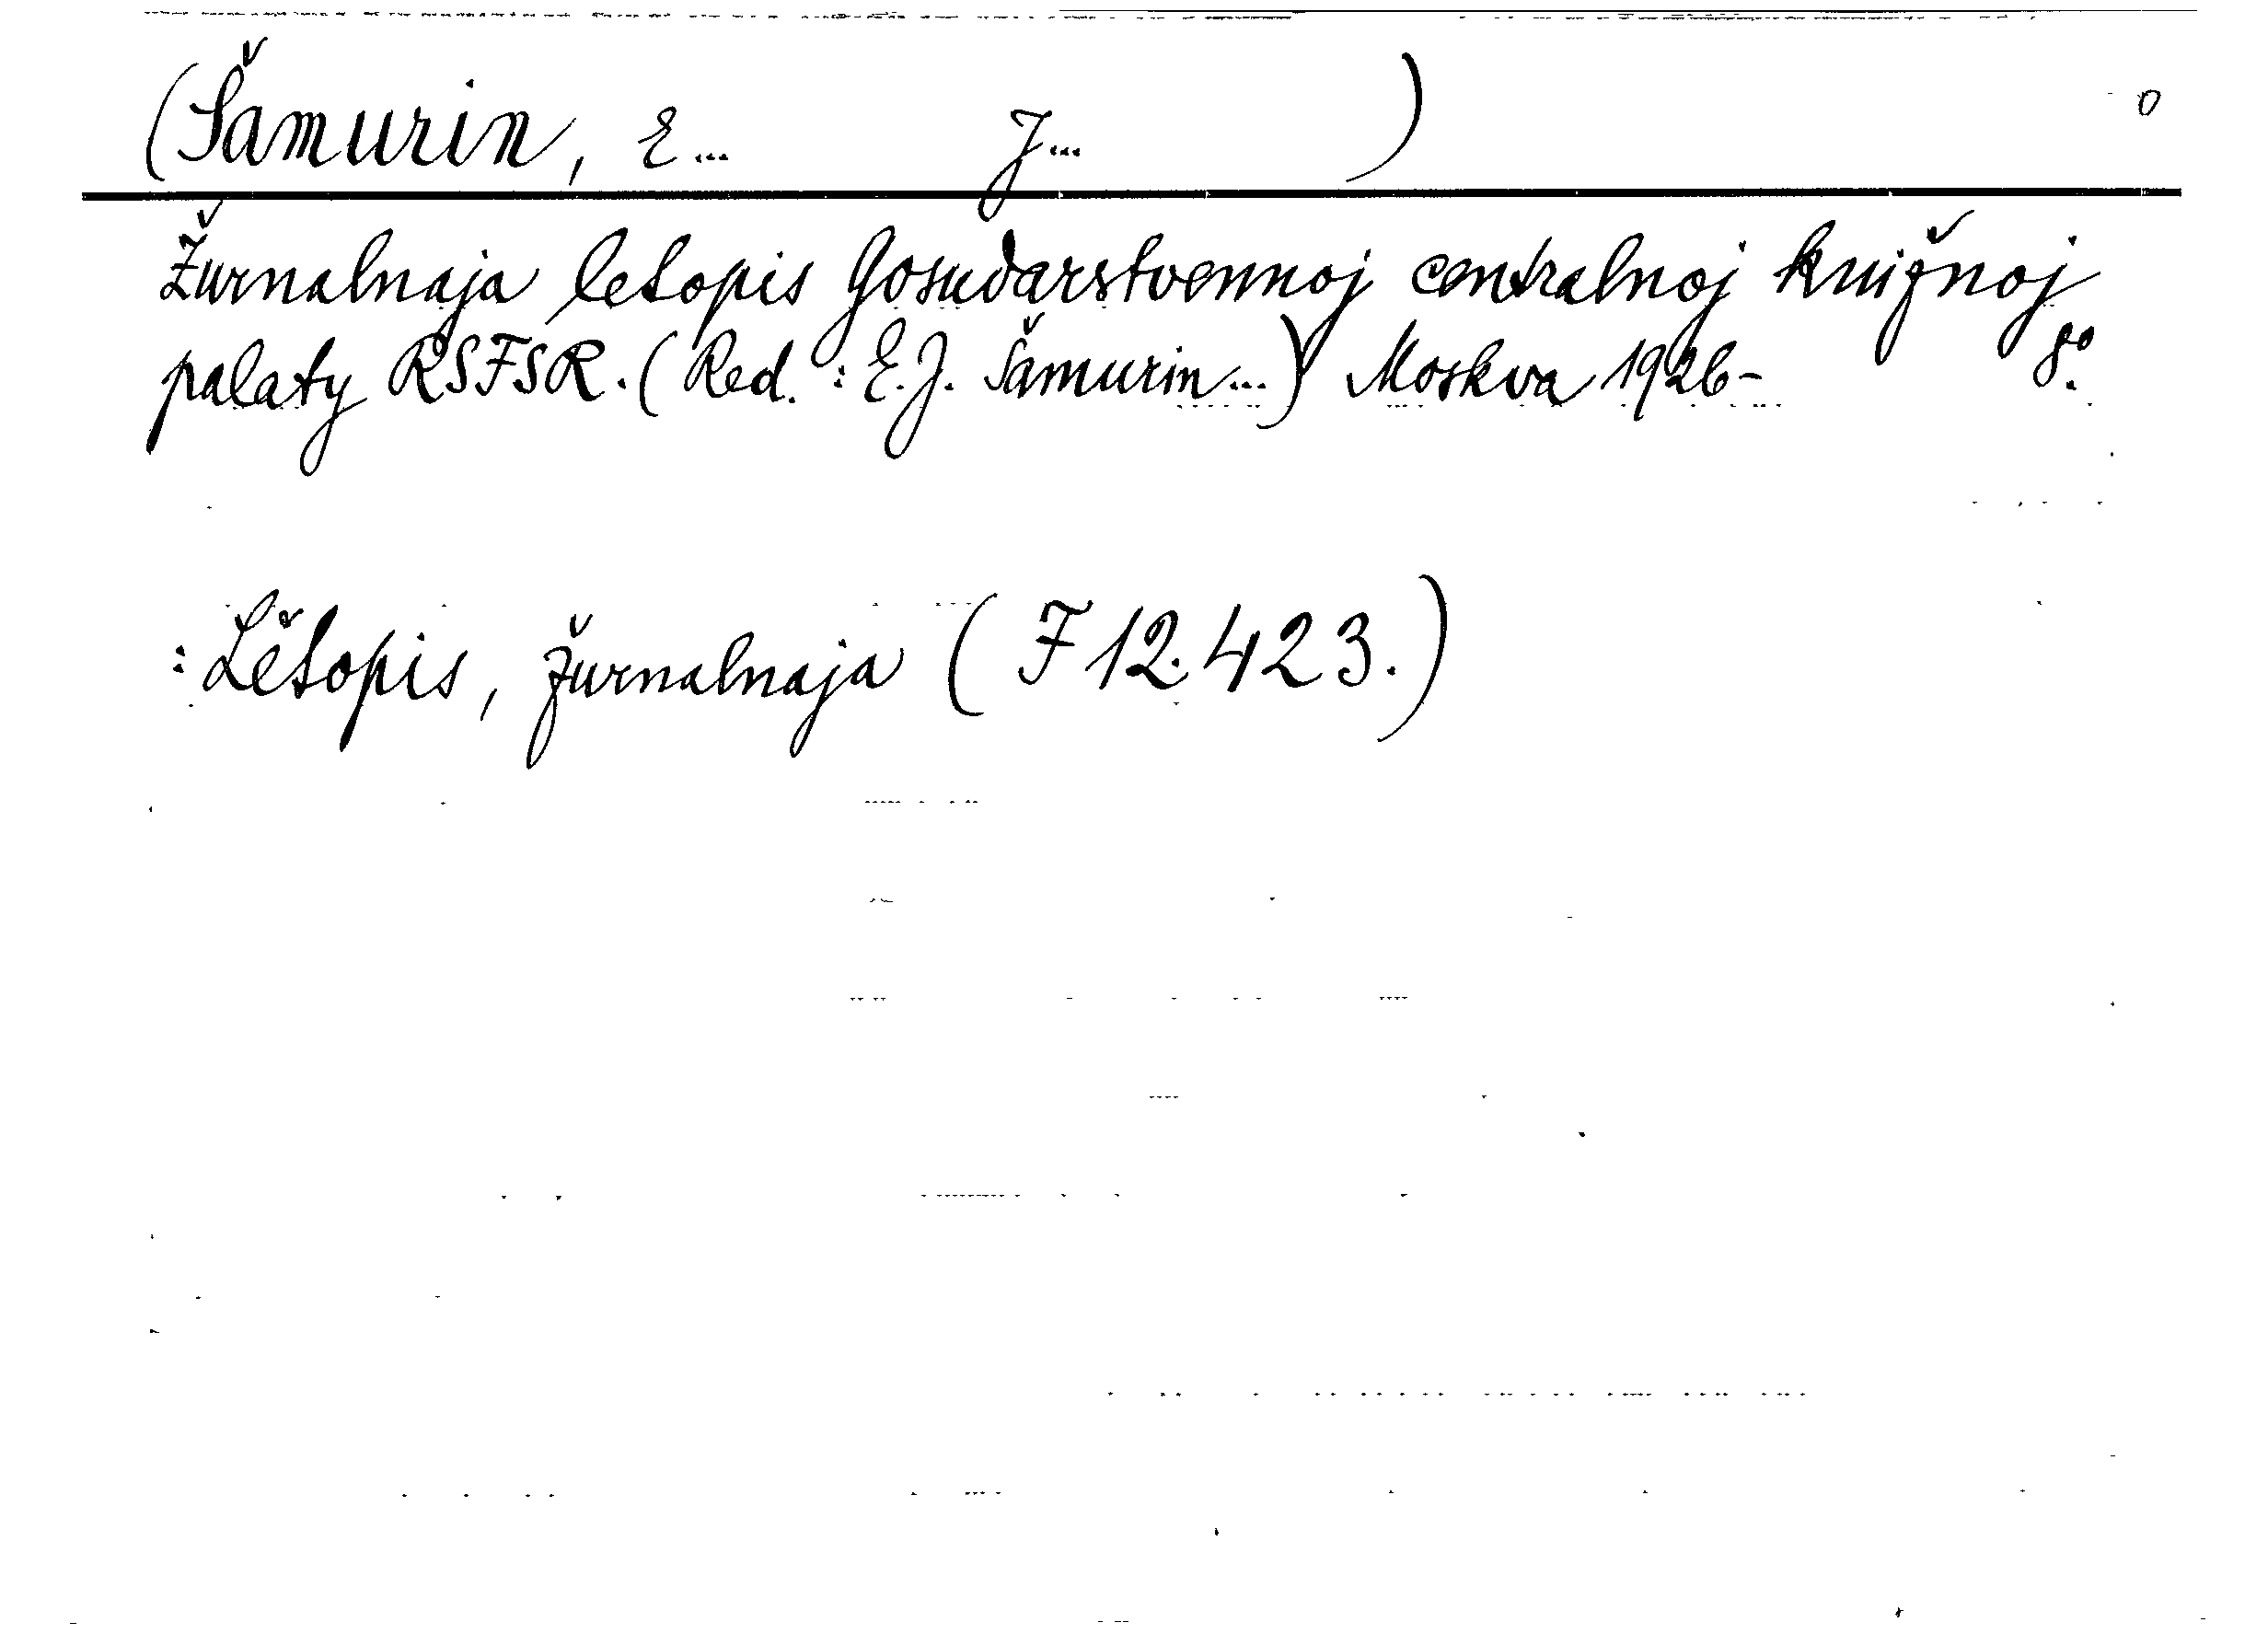 (Šamurin, E... J... ) 0
Žurnalnaja letopis Gosudarstvennoj centralnoj knižnoj
palaty RSFSR. (Red.: E. J. Šamurin...) Moskva 1926- 8°.
: Lětopis, žurnalnaja (F 12.423.)